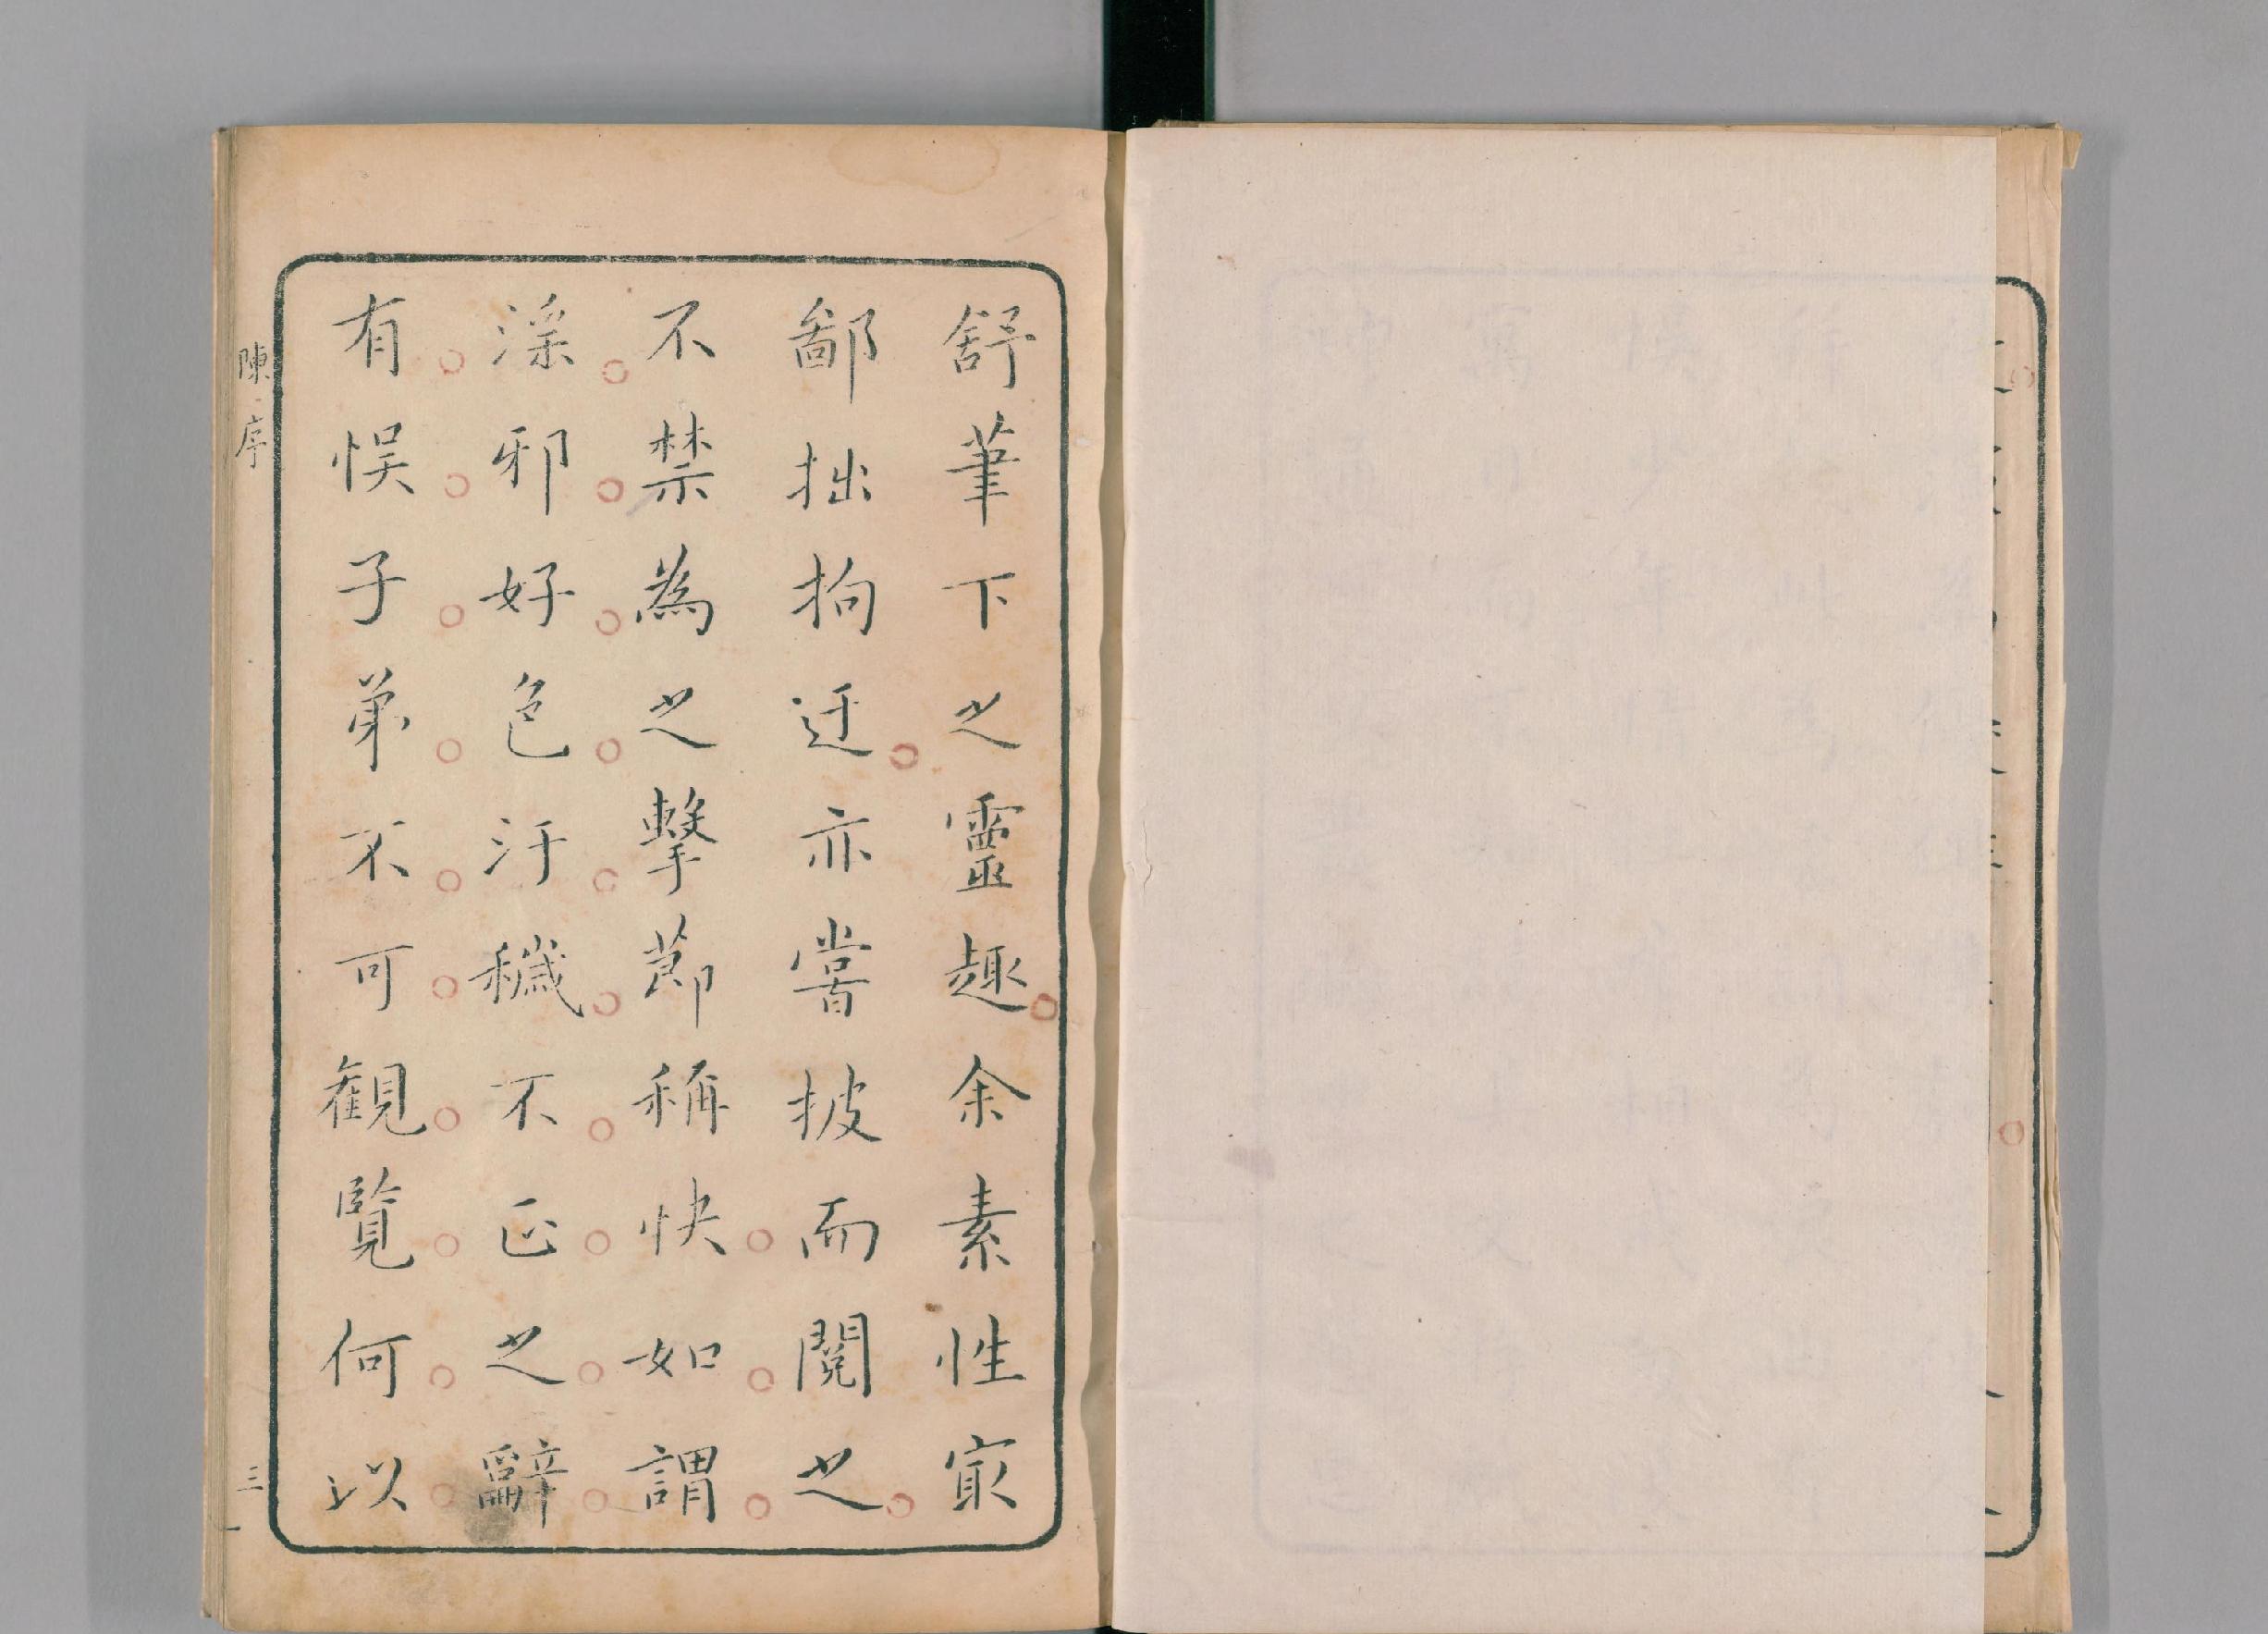 舒筆下之靈趣余素性㝡
鄙拙拘迂亦嘗披而閱之
不禁為之擊節稱快如謂
淫邪好色汙穢不正之辭
有悮子弟不可觀覽何以
陳序
三